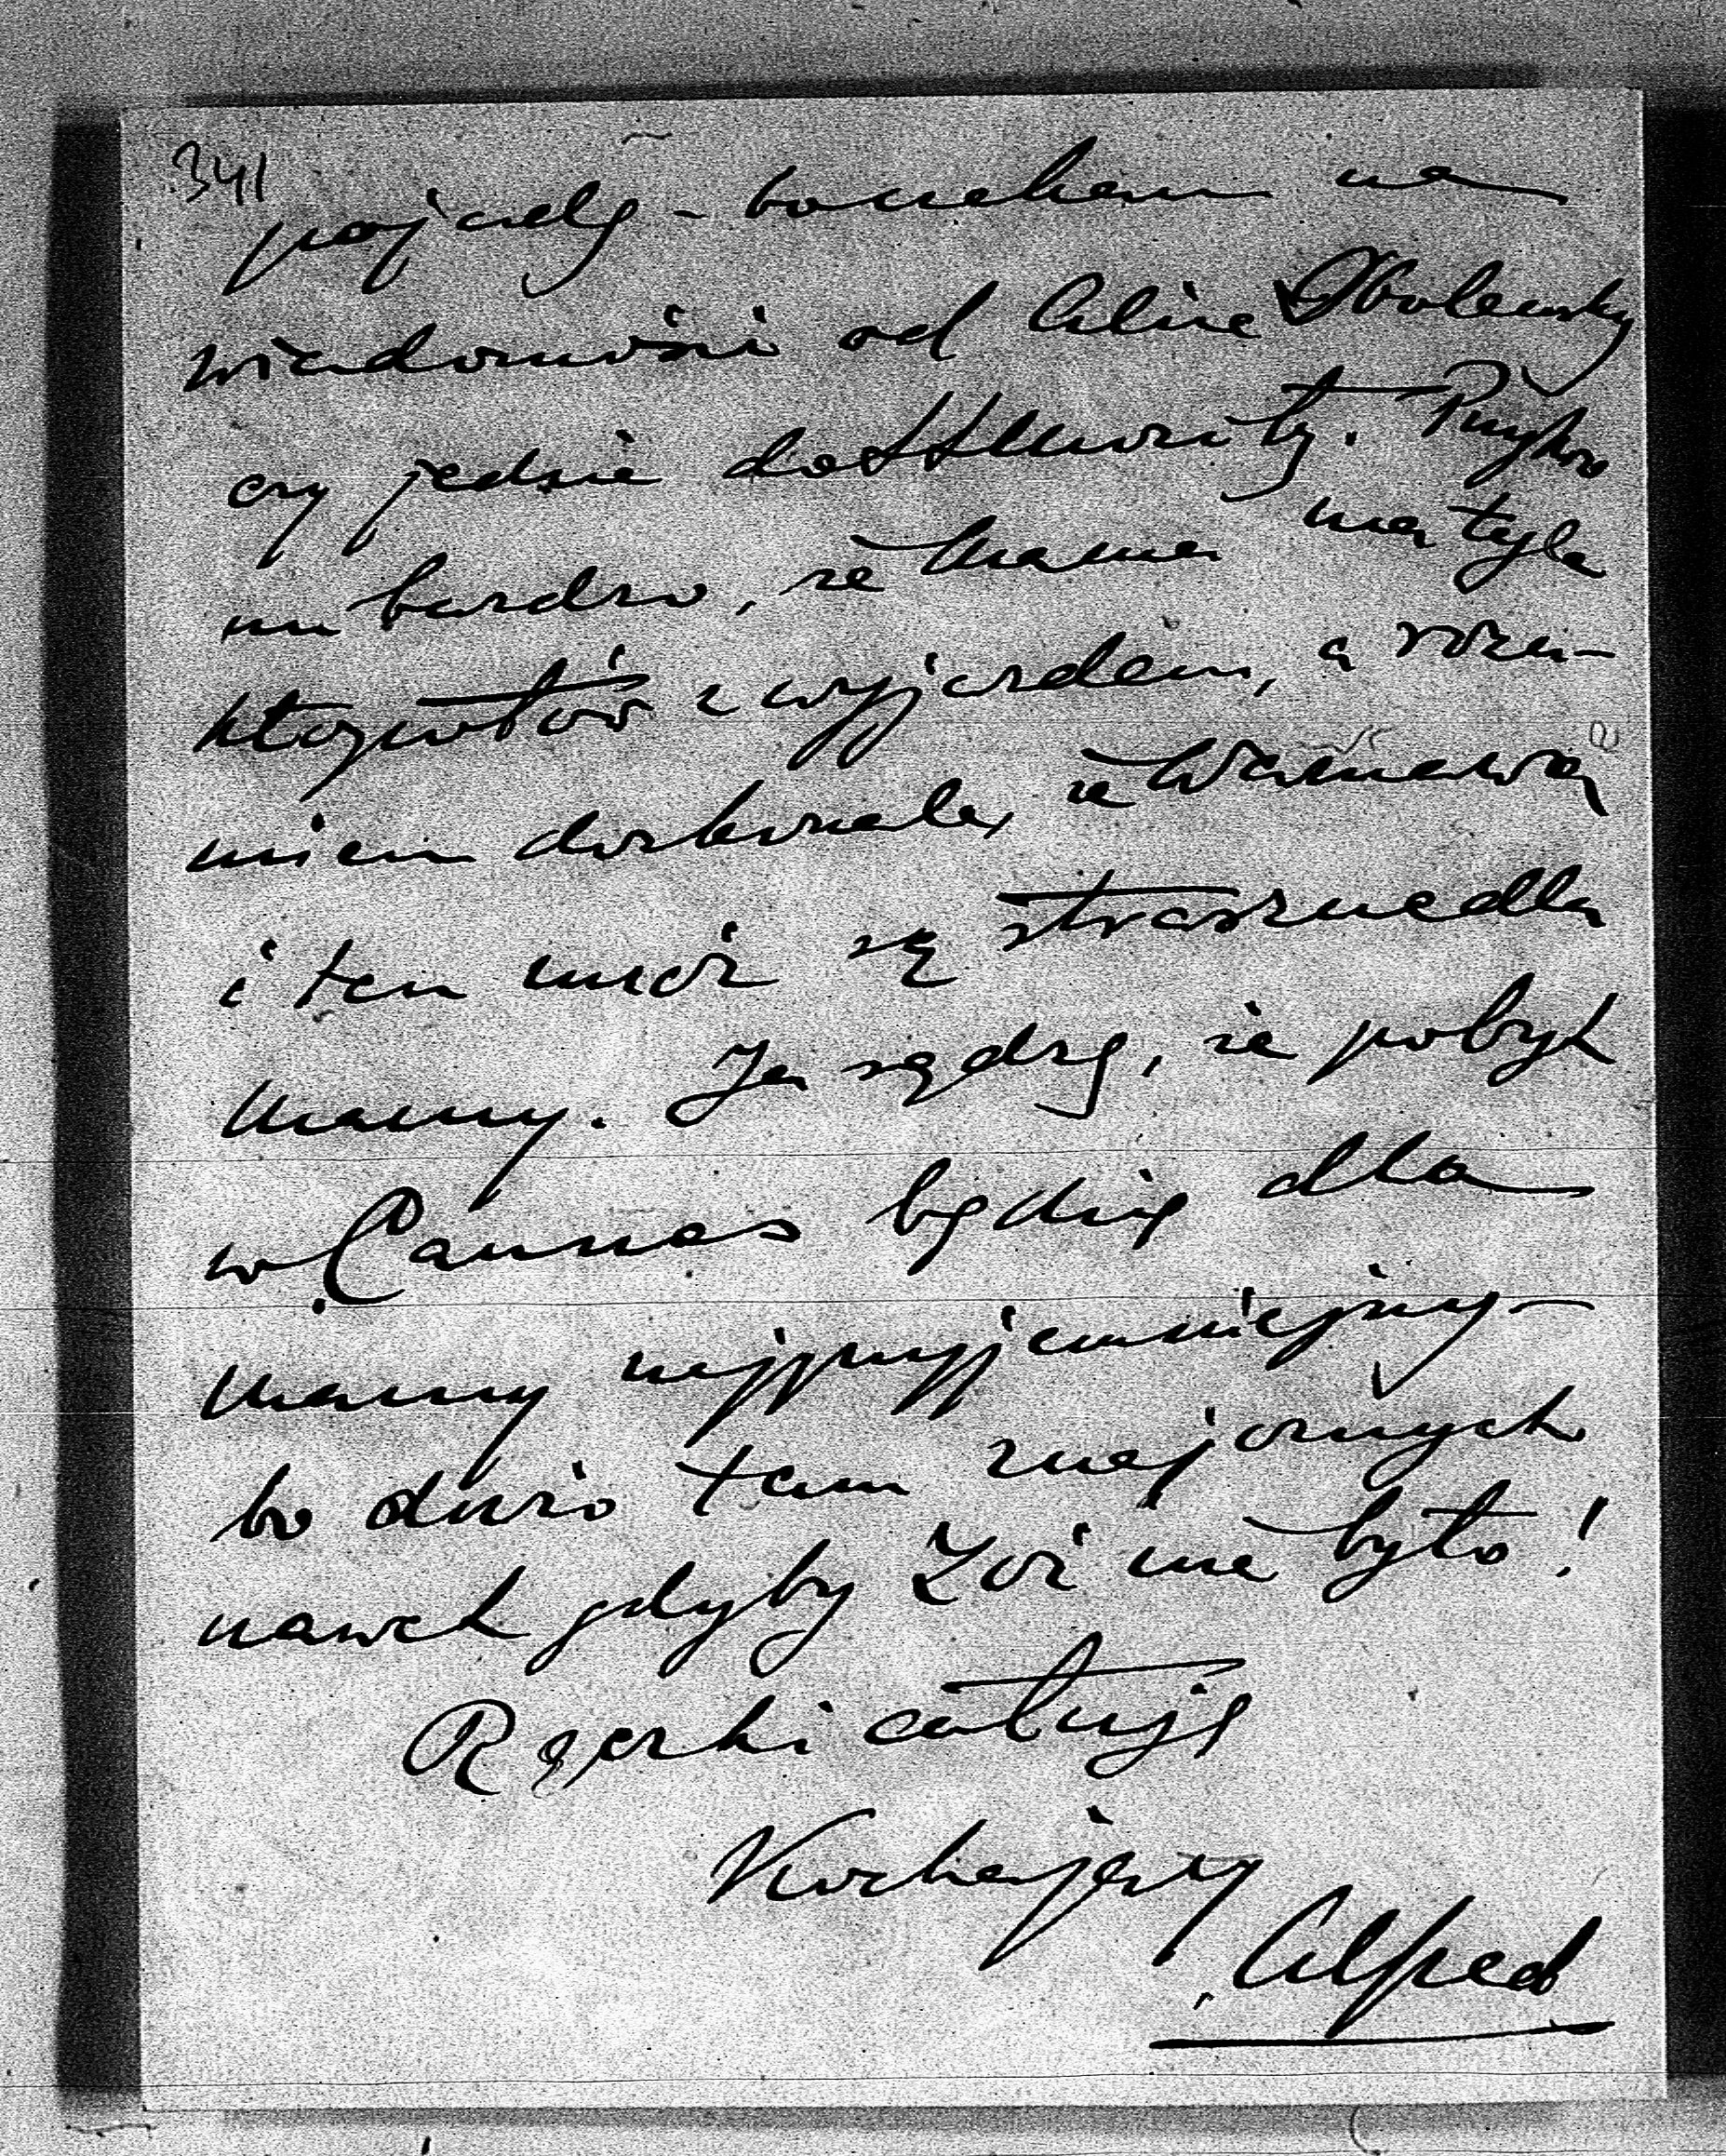 341
pojadę - bo czekam na
wiadomości od Alice Obolensky
czy jedzie do St Moritz. Przykro
mi bardzo, że Mama ma tyle
kłopotów z wyjazdem, a rozu-
miem doskonale, że Warszawa
i ten mróz są straszne dla
Mamy. Ja sądzę, że pobyt
w Cannes będzie dla
Mamy najprzyjemniejszy -
bo dużo tam znajomych
nawet gdyby Zoi nie było!
Rączki całuję
Kochający
Alfred